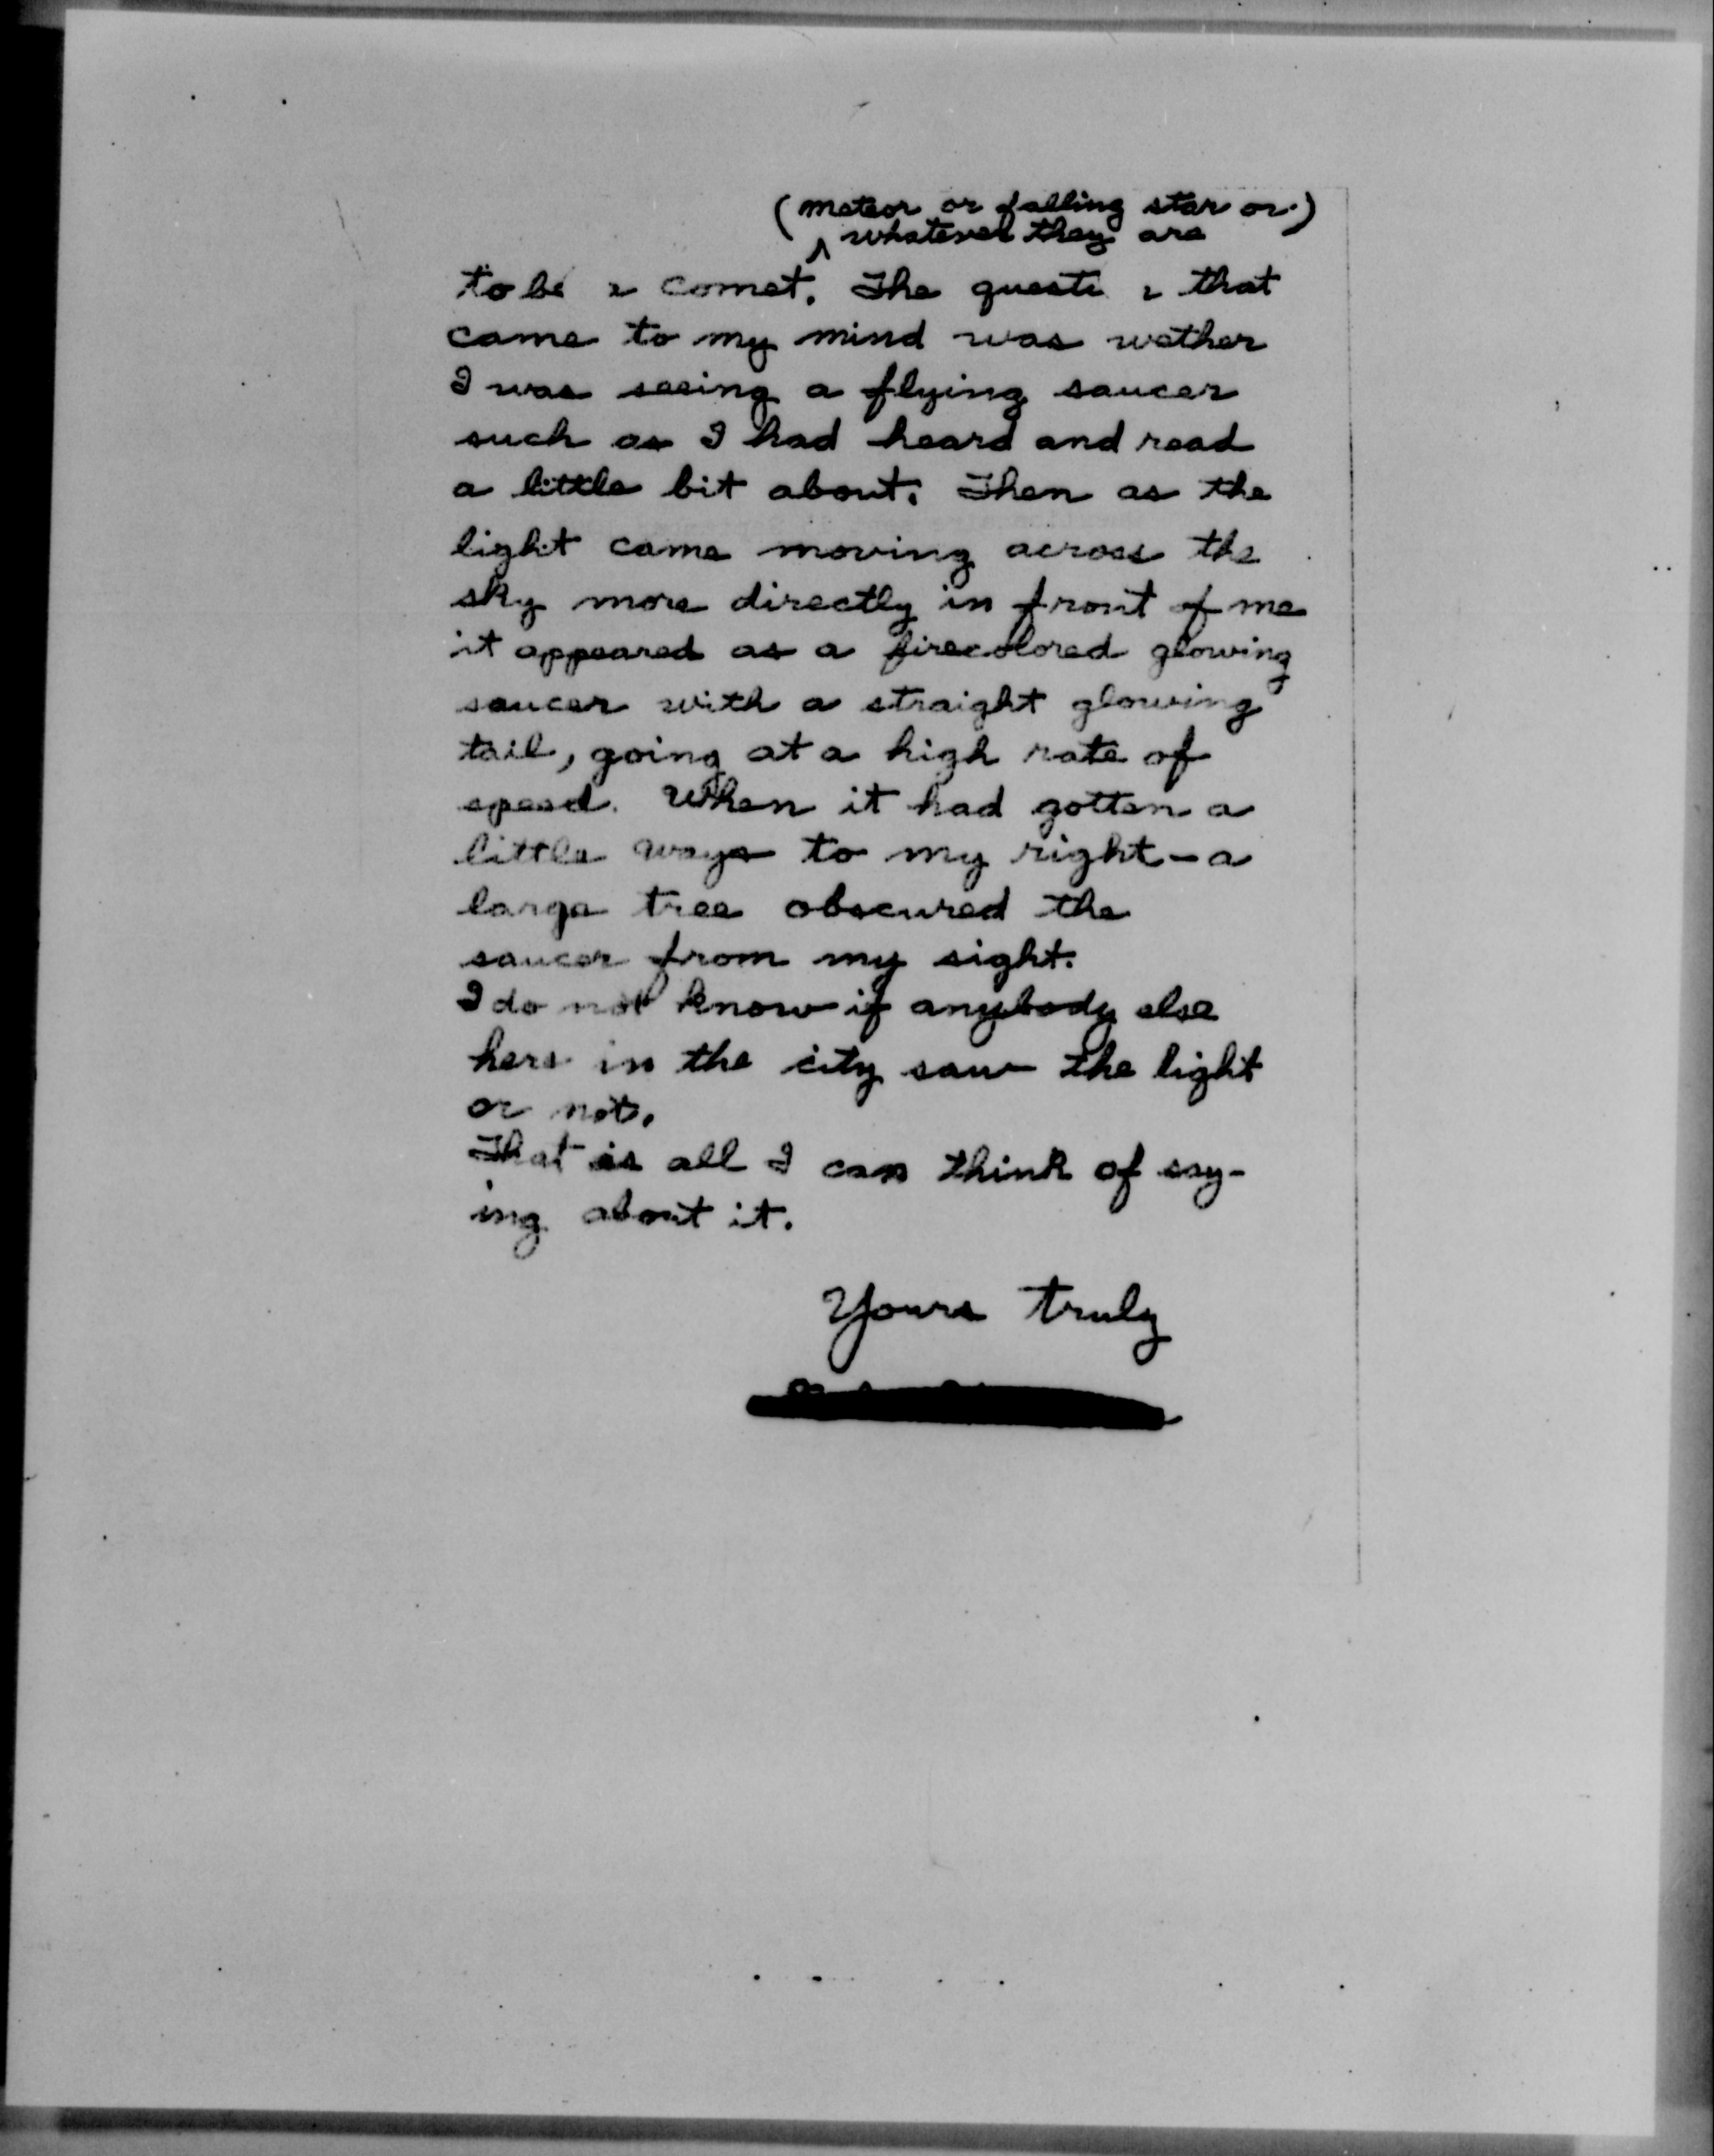 (meteor or falling star or)
whatever they are
to be a comet. The question that
came to my mind was wether
I was seeing a flying saucer
such as I had heard and read
a little bit about. Then as the
light came moving across the
sky more directly in front of me
it appeared as a firecolored glowing
saucer with a straight glowing
tail, going at a high rate of
speed. When it had gotten a
little ways to my right - a
large tree obscured the
saucer from my sight.
I do not know if anybody else
here in the city saw the light
or not.
That is all I can think of say-
ing about it.
Yours truly